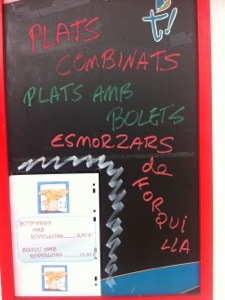 t!
PLATS
COMBINATS
PLATS AMB
BOLETS
ESMORZARS
de
FORQUILLA
BOTIFARRA
AMB
ROVELLONS
BISTEC AMB
ROVELLONS